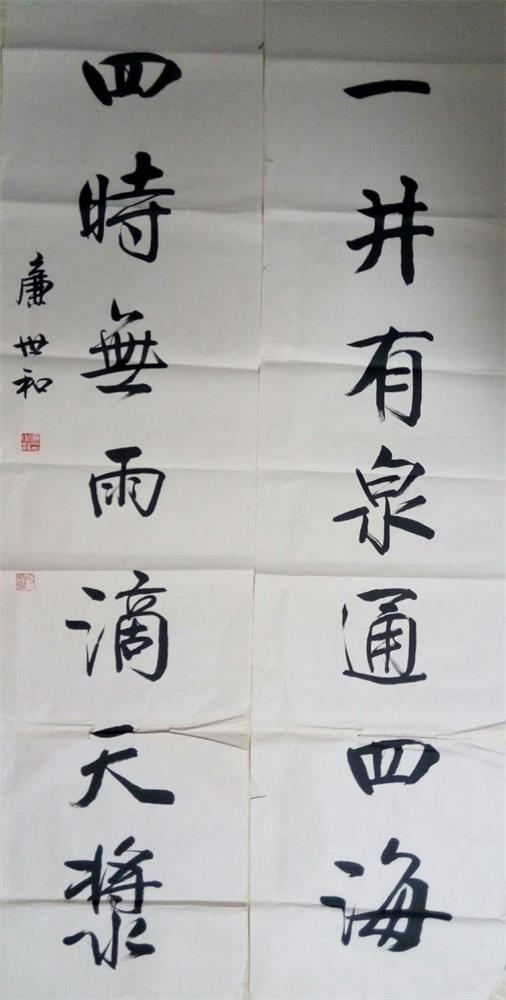 一井有泉通四海
四時無雨滴天漿
廉世和